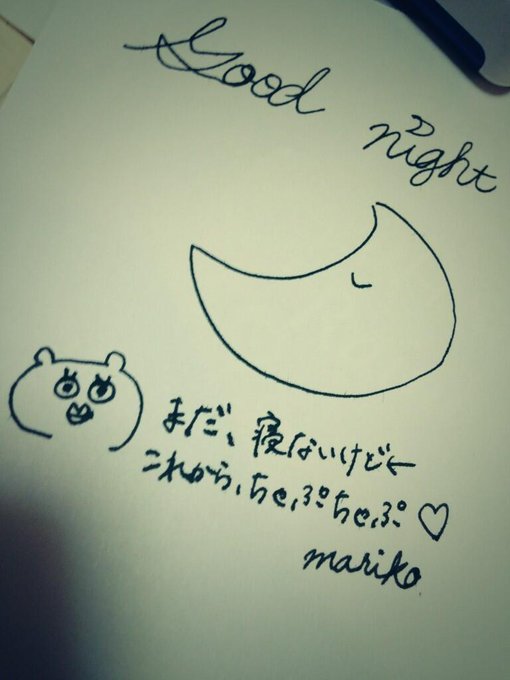 Good
night
まだ、寝ないけど←
これから、ちゃぷちゃぷ♡
mariko